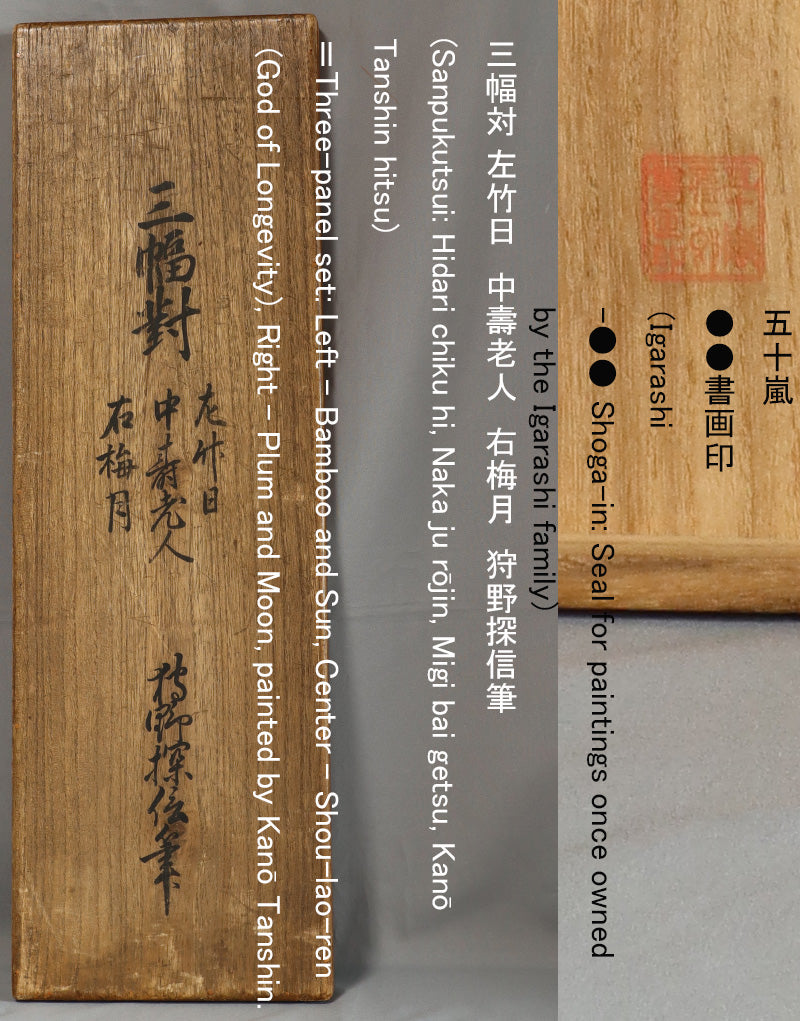 三幅對
左竹日
中壽老人
右梅月
狩野探信筆
三幅対 左竹日 中壽老人 右梅月 狩野探信筆
(Sanpukutsui: Hidari chiku hi, Naka ju rōjin, Migi bai getsu, Kanō
Tanshin hitsu)
=Three-panel set: Left - Bamboo and Sun, Center - Shou-lao-ren
(God of Longevity), Right - Plum and Moon, painted by Kanō Tanshin.
五十嵐
●●書画印
(Igarashi
-●● Shoga-in: Seal for paintings once owned
by the Igarashi family)